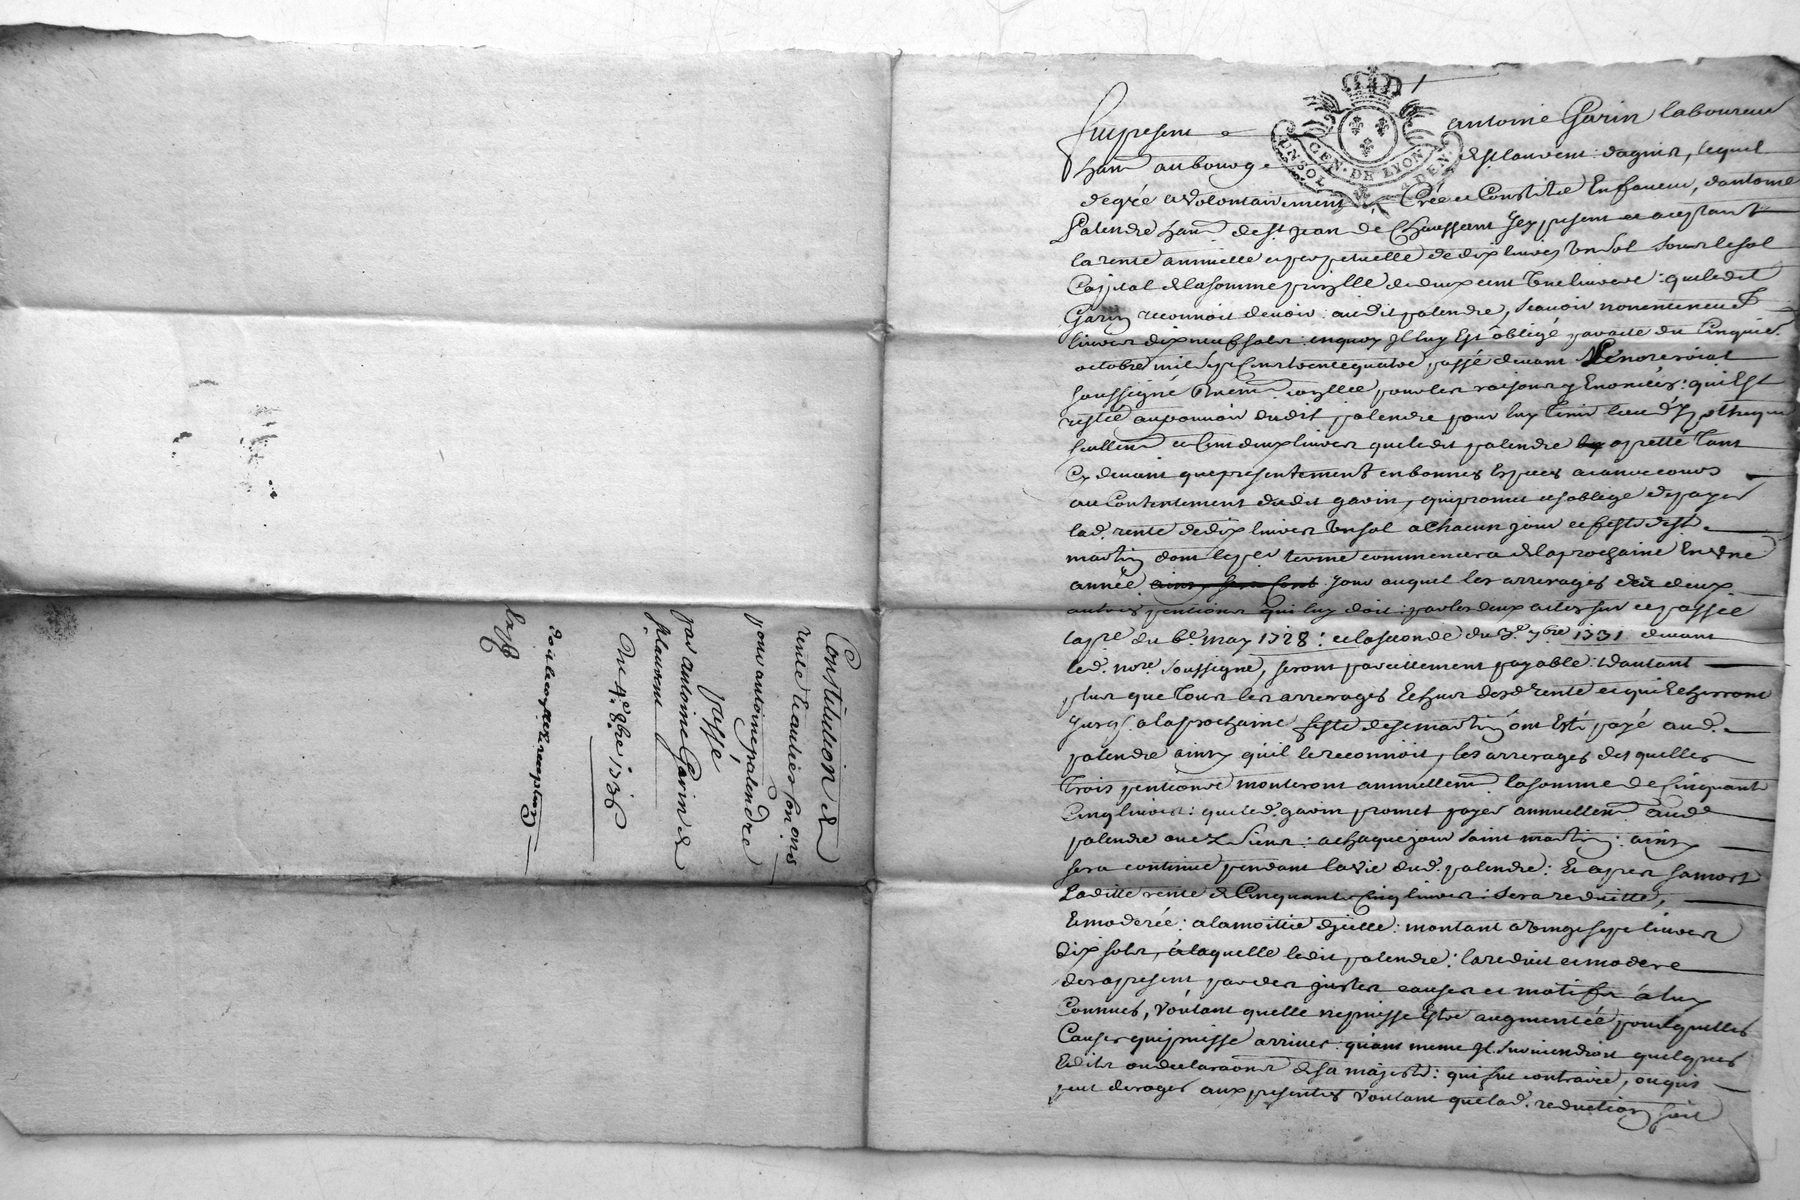 Constitution de
rente & autres sommes
pour antoine palendre
passé
par antoine Garin de
st laurent
Du 4e 8bre 1736
UN SOL
GEN. DE LYON
DEN.
fut present antoine Garin laboureur
hant au bourg de st laurent dagnis, lequel
de gré & volontairement Crée et Constitue En faveur, dantoine
Palendre hant de st jean de Chaussant Icy present et aceptant
la rente annuelle et perpetuelle de dix livres un sol sous le sol
Capital de la somme principalle de deux cent une livres : que ledit
Garin reconnoit devoir audit palendre, scavoir nonente neuf
livres dix neuf sols : en quoy Il luy Est obligé par acte du Cinquie.
octobre mil sept Cent trente quatre passé devant le nore royal
soussigné pour les raisons y Enoncées : qui Est
resté au pouvoir dudit palendre pour luy tenir lieu d'Hypotheque
seullemt et Cent deux livres que ledit palendre luy a pretté tant
Cy devant que presentement en bonnes Especes ayant cours
au Contentement dudit garin, qui promet et s'oblige de payer
lad. rente de dix livres un sol a Chacun jour et feste de st
martin dont le pr terme commencera de la prochaine En une
année jour auquel les arrerages des deux
autres pentions qui luy doit : par les deux actes sur ce passés
la pre du 6e may 1728 : et la seconde du 3e 7bre 1731 devant
led. nore soussigné, seront pareillement payable : dautant
plus que tous les arrerages Echus desd rente et qui Echerront
jusqs a la prochaine feste de st martin ont Esté payé aud.
palendre ainsy qu'il le reconnoit, les arrerages des quelles
trois pentions monteront annuellemt la somme de Cinquante
Cinq livres : que led. garin promet payer annuellemt aud.
palendre ou ez siens : a chaque jour saint martin : ainsy
sera continué pendant la vie dud. palendre : Et apres sa mort
Laditte rente de Cinquante Cinq livres : sera reduitte,
& moderée : a la moitié d'jcelle : montant a vingt sept livres
dix sols, a laquelle ledit palendre : la reduit et modere
des a present par des justes causes et motifs a luy
Connues, voulant quelle ne puisse Estre augmentée pour quelles
Causes qui puisse arriver : quant meme Il surviendroit quelques
Edits ou declaraons de sa majesté : qui fut contraire, ou qui
peut deroger aux presentes voulant que lad. reduction soit